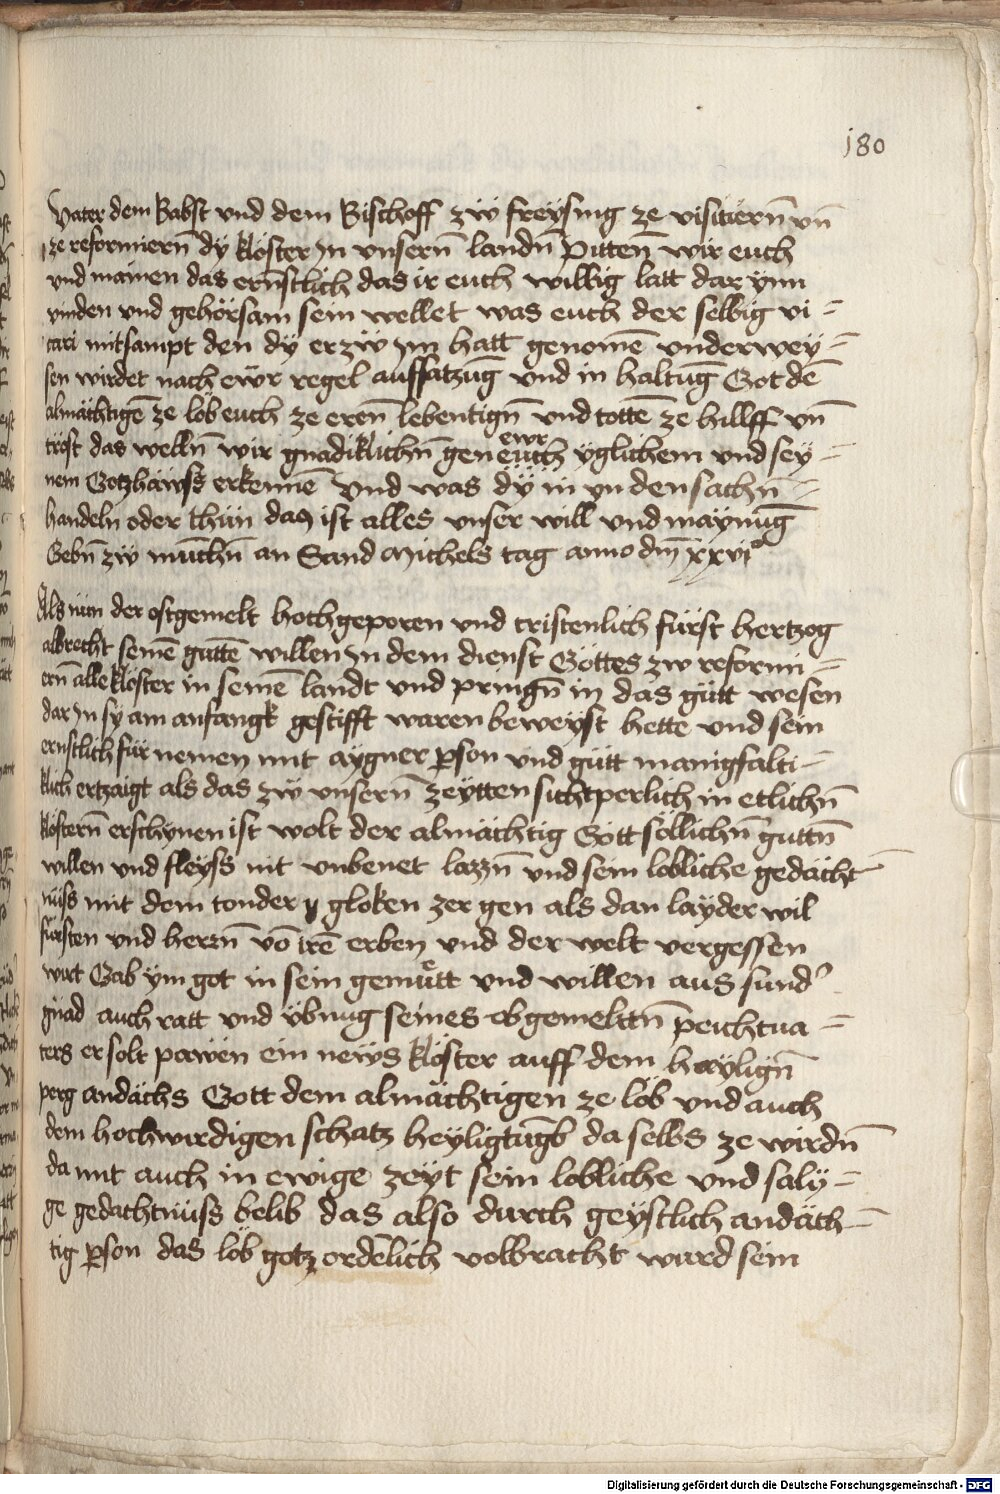 180
Vater dem Babst vnd dem Bischoff zẅ freÿsing ze visitiern̄ vn̄
ze reformiern̄ dÿ klöster Jn vnsern̄ landn̄ Pitten̄ wir euch
vnd mainen das ernstlich das ir euch willig latt dar ynn
vinden vnd gehörsam sein wellet was euch der selbig vi =
cari mitsampt den dÿ er zẅ im hatt genomē vnderweÿ =
sen wirdet nach ewr regel auffsatzūg vnd in haltūg Got dē
almächtigē ze löb euch ze eren̄ lebentign̄ vnd tottē ze hillff vn̄
tröst das welln̄ wir gnädiklichn̄ gen euch ÿglichem vnd seÿ =
ewr
nem Gotzhäwss erkennē Vnd was dÿ in vn den sachn̄ =
handeln oder thün das ist alles vnser will vnd maynūg
Gebn̄ zẅ mūchn̄ an Sand Michels tag anno dm̄ xxvi°
Als nün der oftgemelt hochgeporen vnd cristenlich fürst hertzog
albrecht seinē guttē willen Jn dem dienst Göttes zw reformi =
ern̄ alle klöster in seinē landt vnd pringn̄ in das gütt wesen
dar Jn sÿ am anfangk gestifft waren beweÿst hette vnd sein
ernstlich für nemen mit aygner p̄son vnd gütt manigfalti =
klich ertzaigt als das zẅ vnsern̄ zeÿtten sichtperlich in etlichn̄
klöstern̄ erschynen ist wolt der almächtig Gött söllichn̄ guttn̄
willen vnd fleÿss nit vnbenet lazzn̄ vnd sein lobliche gedächt =
nüss mit dem tonder ÿ gloken zer gen als dan laÿder wil
fürsten vnd herzn̄ vō irē erben vnd der welt vergessen
wirt Gab ÿm got in sein gemuͤtt vnd willen aus sund'
gnad auch ratt vnd übnug seines obgemelttn̄ peichtua =
ters er solt pawen ein neẅs klöster auff dem haÿlign̄
perg andächs Gott dem almächtigen ze löb vnd auch
dem hochwirdigen schatz heÿligtūgb da selbs ze wirdn̄
da mit auch in ewige zeÿt sein lobliche vnd salÿ =
ge gedachtnüss belib das also durch geÿstlich andäch =
tig p̄son das löb gotz ordēlich volbracht wurd sein
Digitalisierung gefördert durch die Deutsche Forschungsgemeinschaft - DFG